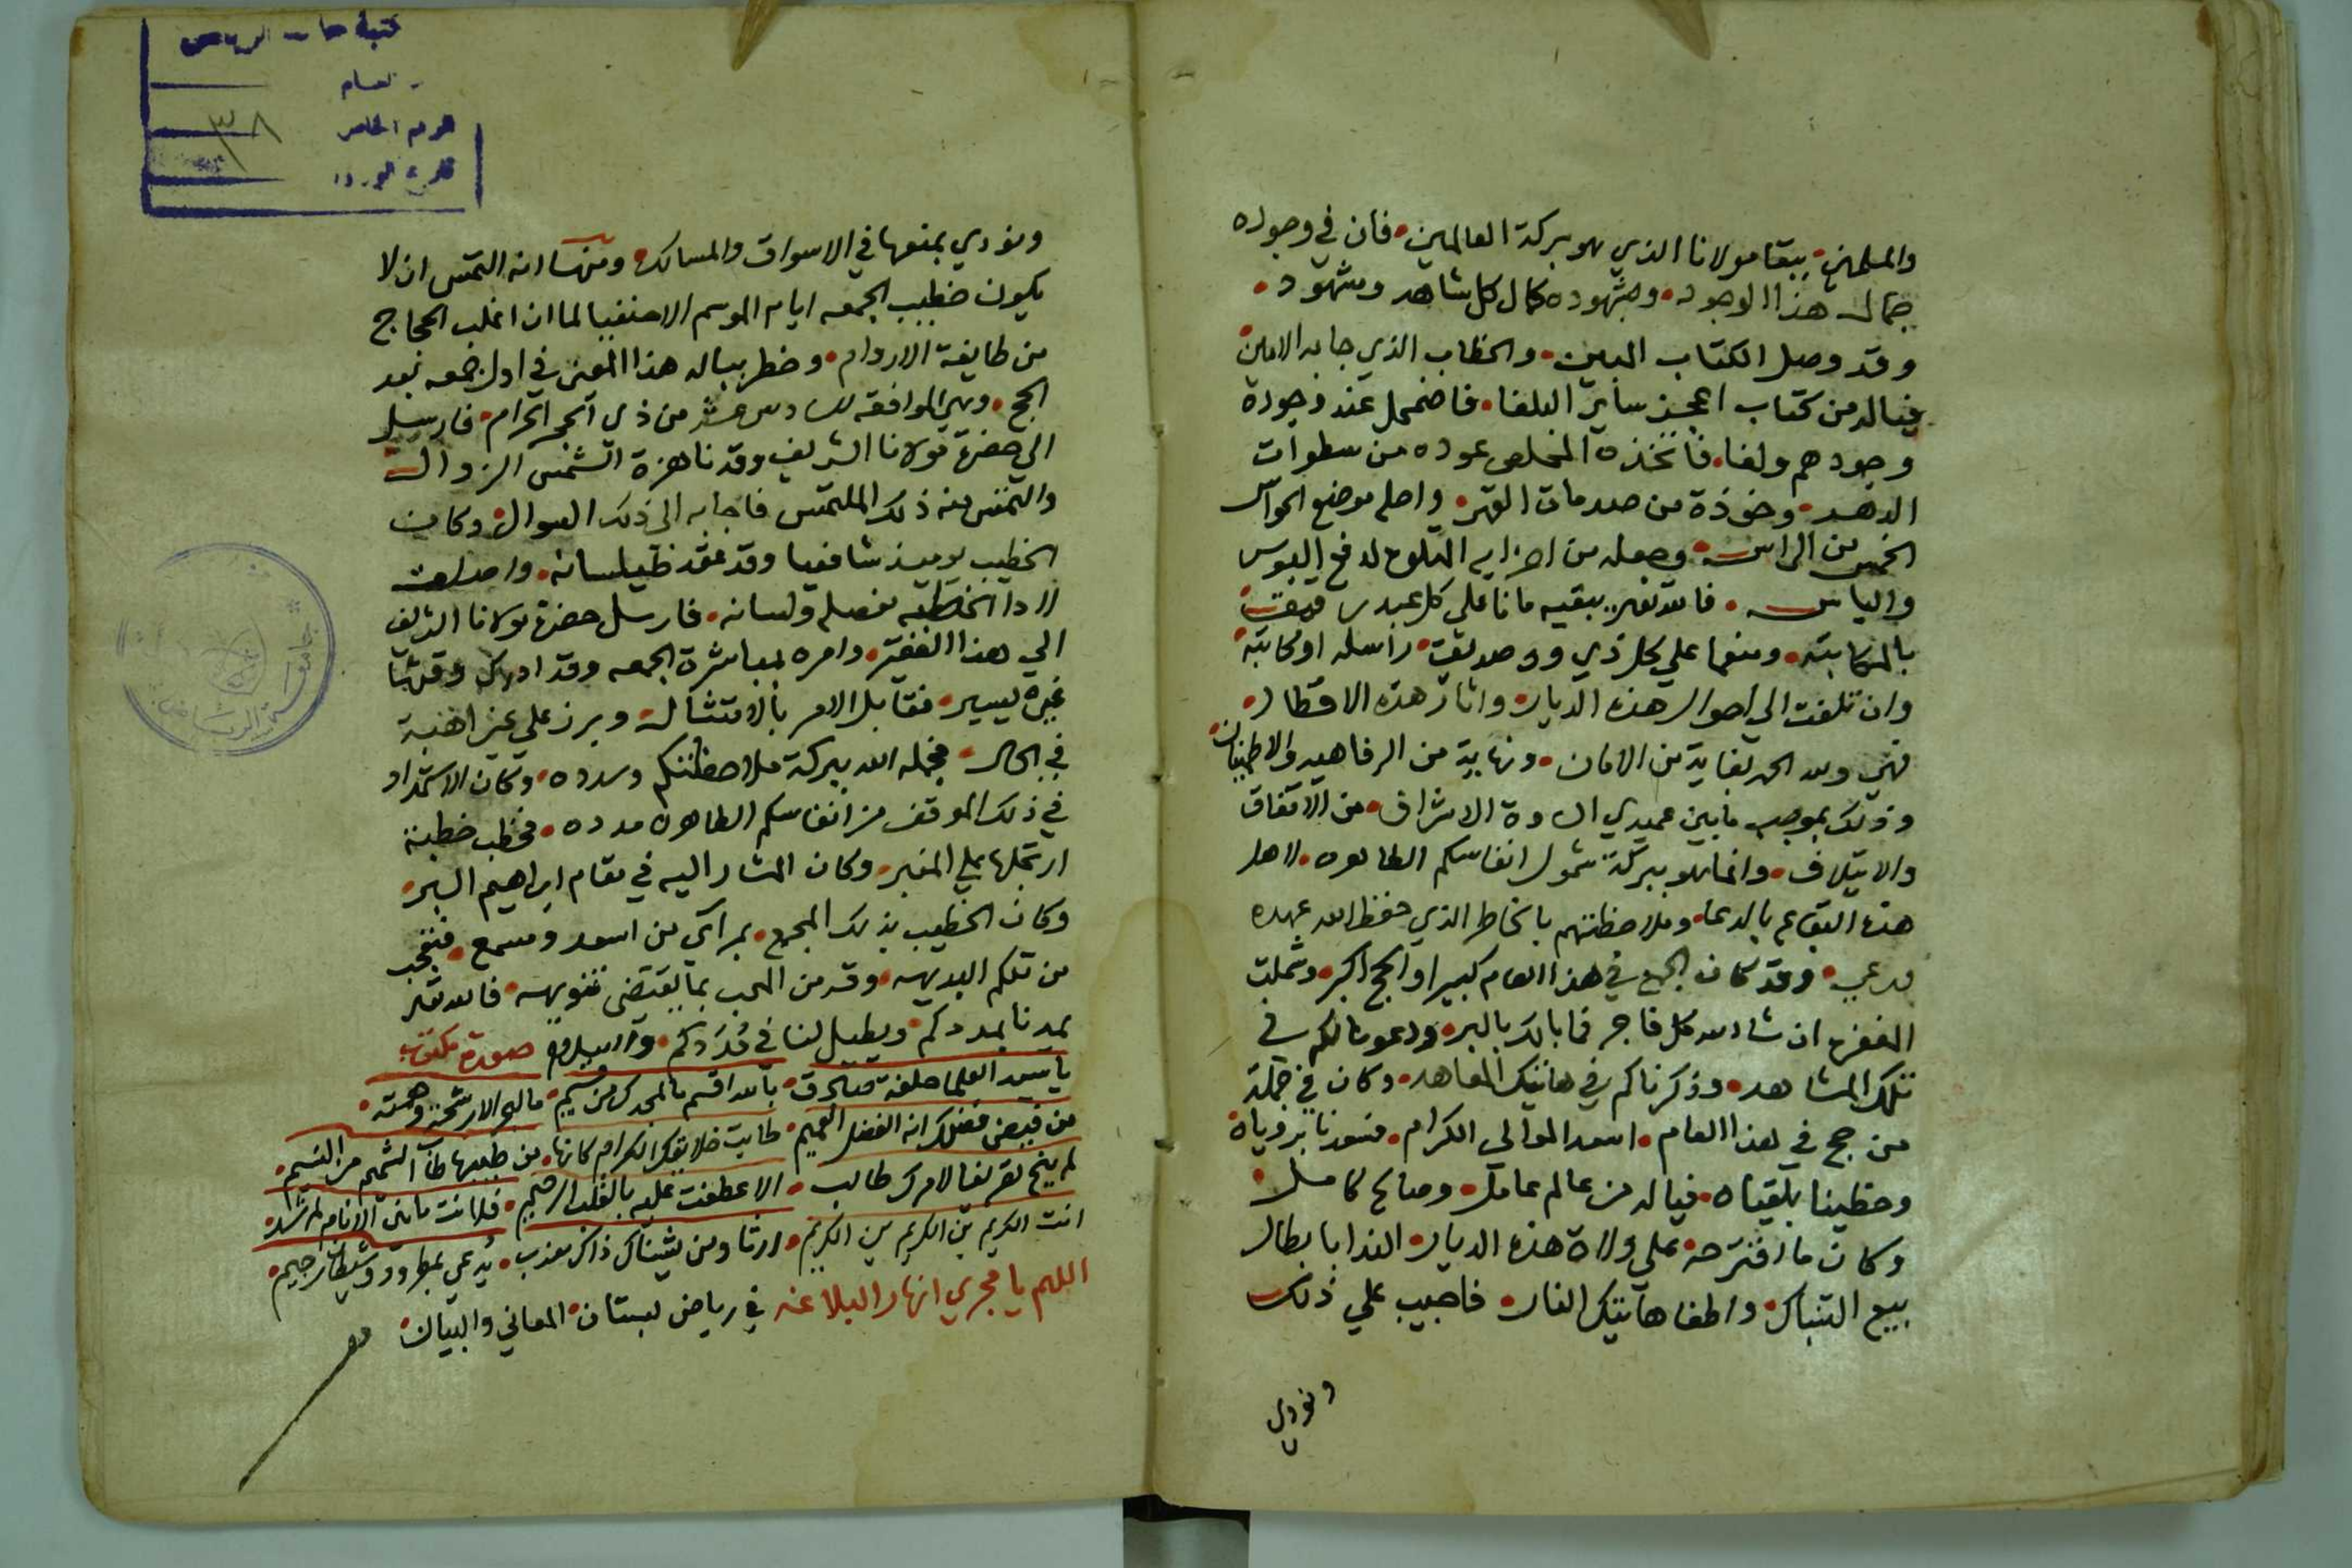 والمسلمين ببقا مولانا الذي هو بركة العالمين فان في وجوده
جمال هذا الوجود وبشهوده كمال كل شاهد ومشهود
وقد وصل الكتاب المبين والخطاب الذي جا به الامين
فياله من كتاب اعجز ساير البلغا فاضمحل عند وجوده
وجودهم ولغا فاتخذه المخلص عوده من سطوات
الدهر وخوذة من صدمات القهر واحله موضع الحواس
الخمس من الراس وجعله من احزابه لدفع البوس
والباس فالله تعالى يبقيه مانا على كل عبد رقيق
بالمكاتبة ومنعما على كل ذي ود صديق راسله او كاتبه
وان تلفت الى احوال هذه الديار واثار هذه الاقطار
فهي ولله الحمد بغاية من الامان ونهاية من الرفاهية والاطمينان
وذلك بموجب ما بين عميدي السادة الاشراف من الاتفاق
والايتلاف وانما هو ببركة شمول انفاسكم الطاهره لاهل
هذه البقاع بالدعا وملاحظتهم بالخاطر الذي حفظ الله عهده
ورعي وقد كان الحج في هذا العام كبيرا والحج اكبر وشملت
المغفره ان شا الله كل فاجر فما بالك بالبر ودعونا لكم في
تلك المشاهد وذكرناكم في هاتيك المعاهد وكان في جملة
من حج في هذا العام اسعد الموالي الكرام فسعدنا برؤياه
وحظينا بلقياه فياله من عالم عامل وصالح كامل
وكان ما اقترحه على ولاة هذه الديار الندا بابطال
بيع التنباك واطفا هاتيك النار فاجيب على ذلك
ونودي
ونودي بمنعها في الاسواق والمسالك ومنها انه التمس ان لا
يكون خطيب الجمعه ايام الموسم الا حنفيا لما ان اغلب الحجاج
من طايفة الاروام وخطر بباله هذا المعنى في اول جمعه بعد
الحج وهي الموافقه لسادس عشر من ذي الحجه الحرام فارسل
الى حضرة مولانا الشريف وقد ناهزة الشمس الزوال
والتمس منه ذلك الملتمس فاجابه الى ذلك السوال وكان
الخطيب يوميذ شافعيا وقد عقد طيلسانه
لادا الخطبه ولسانه فارسل حضرة مولانا الشريف
الي هذا الفقير وامره بمباشرة الجمعه وقد ادرك وقتها
غير يسير فقابل الامر بالامتثال وبرز على غير اهبة
في الحال فجمله الله ببركة ملاحظتكم وسدده وكان الاستمداد
في ذلك الموقف من انفاسكم الطاهره مدده فخطب خطبة
ارتجلها على المنبر وكان المشار اليه في مقام ابراهيم البر
وكان الخطيب بذلك المجمع بمرأى من اسعد ومسمع فتعجب
من تلكم البديهه وقد من العجب بما يقتضي تنويهه فالله تعالى
يمدنا بمددكم ويطيل لنا في مُدَدكم والسلام صورة مكتوب
يا سيد العلما حلفة صادق بالله اقسم ما لمجدك من قسيم ما البحر الا رشحة وهمته
من فيض فضلك انه الفضل العميم طابت خلايقك الكرام كانها من طيبها طاب الشميم من النسيم
لم ينج تعريفا لامرك طالب الا عطفت عليه بالقلب الرحيم فلانت ما بين الانام لمرشد
انت الكريم بن الكريم بن الكريم ومن يشيناك ذاك معذب يُدعي بمطرود وشيطان رجيم
اللهم يا مجري انهار البلاغه في رياض بستان المعاني والبيان
الرقم الخاص
٣٨